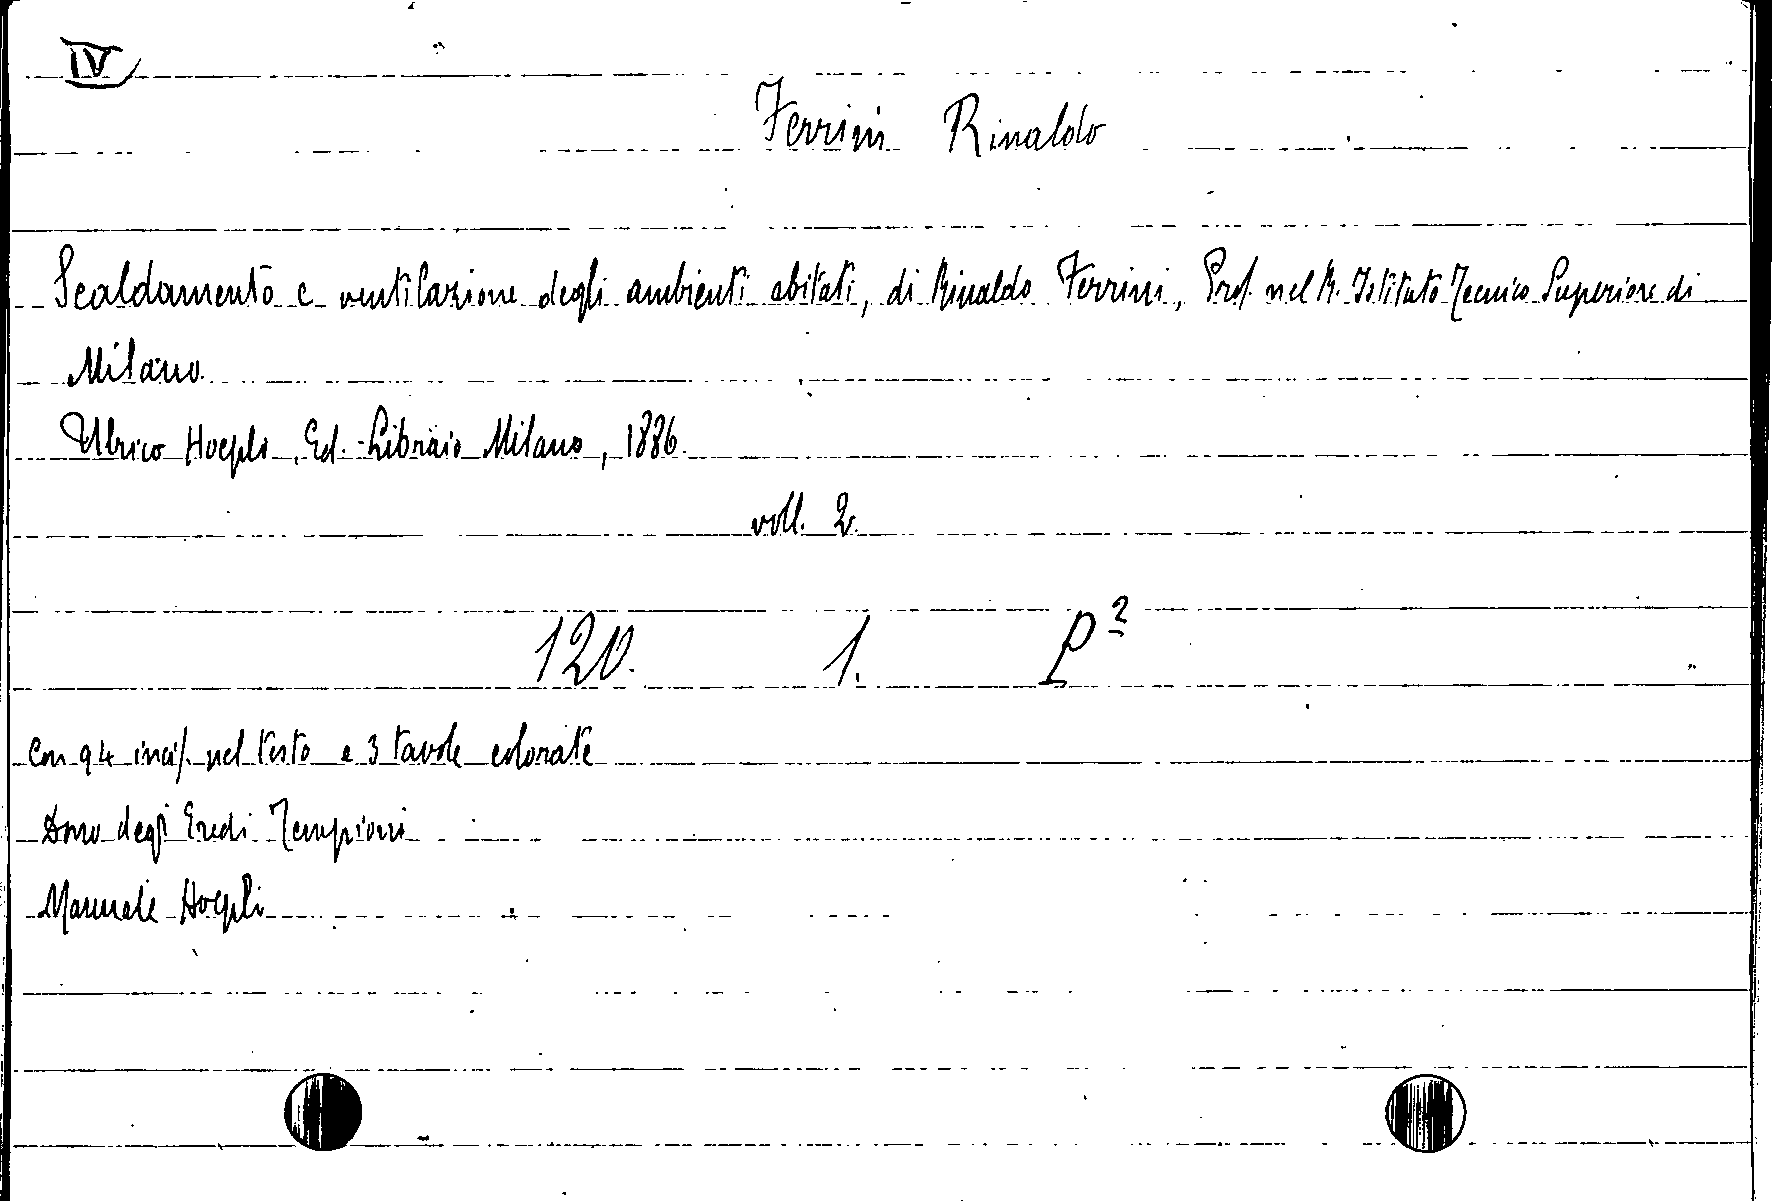 IV
Ferrini Rinaldo
Scaldamento e ventilazione degli ambienti abitati, di Rinaldo Ferrini, Prof. nel R. Istituto Tecnico Superiore di
Milano
Ulrico Hoepli, Ed.-Libraio Milano, 1886.
voll. 2.
120. 1. P²
Con 94 incis. nel testo e 3 tavole colorate
Dono degli Eredi Tempioni
Manuale Hoepli